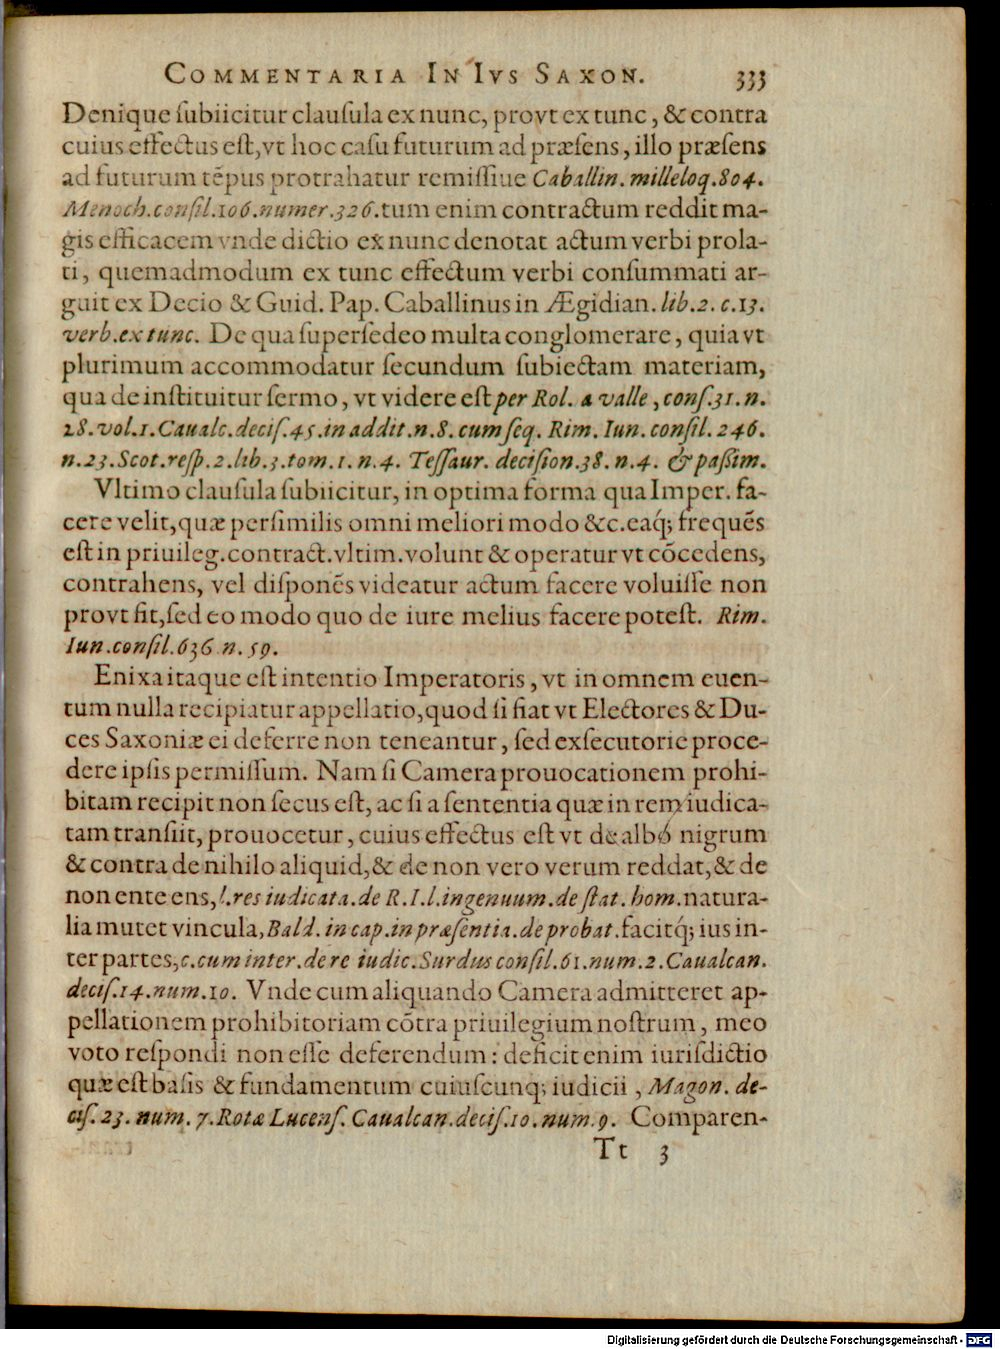 COMMENTARIA IN IVS SAXON. 333
Denique ſubiicitur clauſula ex nunc, provt ex tunc, & contra
cuius effectus eſt, vt hoc caſu futurum ad præſens, illo præſens
ad futurum tẽpus protrahatur remiſſiue Caballin. milleloq. 804.
Menoch. conſil. 106. numer. 326. tum enim contractum reddit ma-
gis efficacem vnde dictio ex nunc denotat actum verbi prola-
ti, quemadmodum ex tunc effectum verbi conſummati ar-
guit ex Decio & Guid. Pap. Caballinus in Ægidian. lib. 2. c. 13.
verb. ex tunc. De qua ſuperſedeo multa conglomerare, quia vt
plurimum accommodatur ſecundum ſubiectam materiam,
qua de inſtituitur ſermo, vt videre eſt per Rol. a valle, conſ. 31. n.
28. vol. 1. Caualc. deciſ. 45. in addit. n. 8. cum ſeq. Rim. Iun. conſil. 246.
n. 23. Scot. reſp. 2. lib. 3. tom. 1. n. 4. Teſſaur. deciſion. 38. n. 4. & paßim.
Vltimo clauſula ſubiicitur, in optima forma qua Imper. fa-
cere velit, quæ perſimilis omni meliori modo &c. eaq́; frequẽs
eſt in priuileg. contract. vltim. volunt & operatur vt cõcedens,
contrahens, vel diſponẽs videatur actum facere voluiſſe non
provt fit, ſed eo modo quo de iure melius facere poteſt. Rim.
Iun. conſil. 636 n. 59.
Enixa itaque eſt intentio Imperatoris, vt in omnem euen-
tum nulla recipiatur appellatio, quod ſi fiat vt Electores & Du-
ces Saxoniæ ei deferre non teneantur, ſed exſecutorie proce-
dere ipſis permiſſum. Nam ſi Camera prouocationem prohi-
bitam recipit non ſecus eſt, ac ſi a ſententia quæ in rem iudica-
tam tranſiit, prouocetur, cuius effectus eſt vt de albo nigrum
& contra de nihilo aliquid, & de non vero verum reddat, & de
non ente ens, l. res iudicata. de R. I. l. ingenuum. de ſtat. hom. natura-
lia mutet vincula, Bald. in cap. in præſentia. de probat. facitq́; ius in-
ter partes, c. cum inter. de re iudic. Surdus conſil. 61. num. 2. Caualcan.
deciſ. 14. num. 10. Vnde cum aliquando Camera admitteret ap-
pellationem prohibitoriam cõtra priuilegium noſtrum, meo
voto reſpondi non eſſe deferendum: deficit enim iurisdictio
quæ eſt baſis & fundamentum cuiuſcunq; iudicii, Magon. de-
ciſ. 23. num. 7. Rotæ Lucenſ. Caualcan. deciſ. 10. num. 9. Comparen-
Tt 3
Digitalisierung gefördert durch die Deutsche Forschungsgemeinschaft - DFG